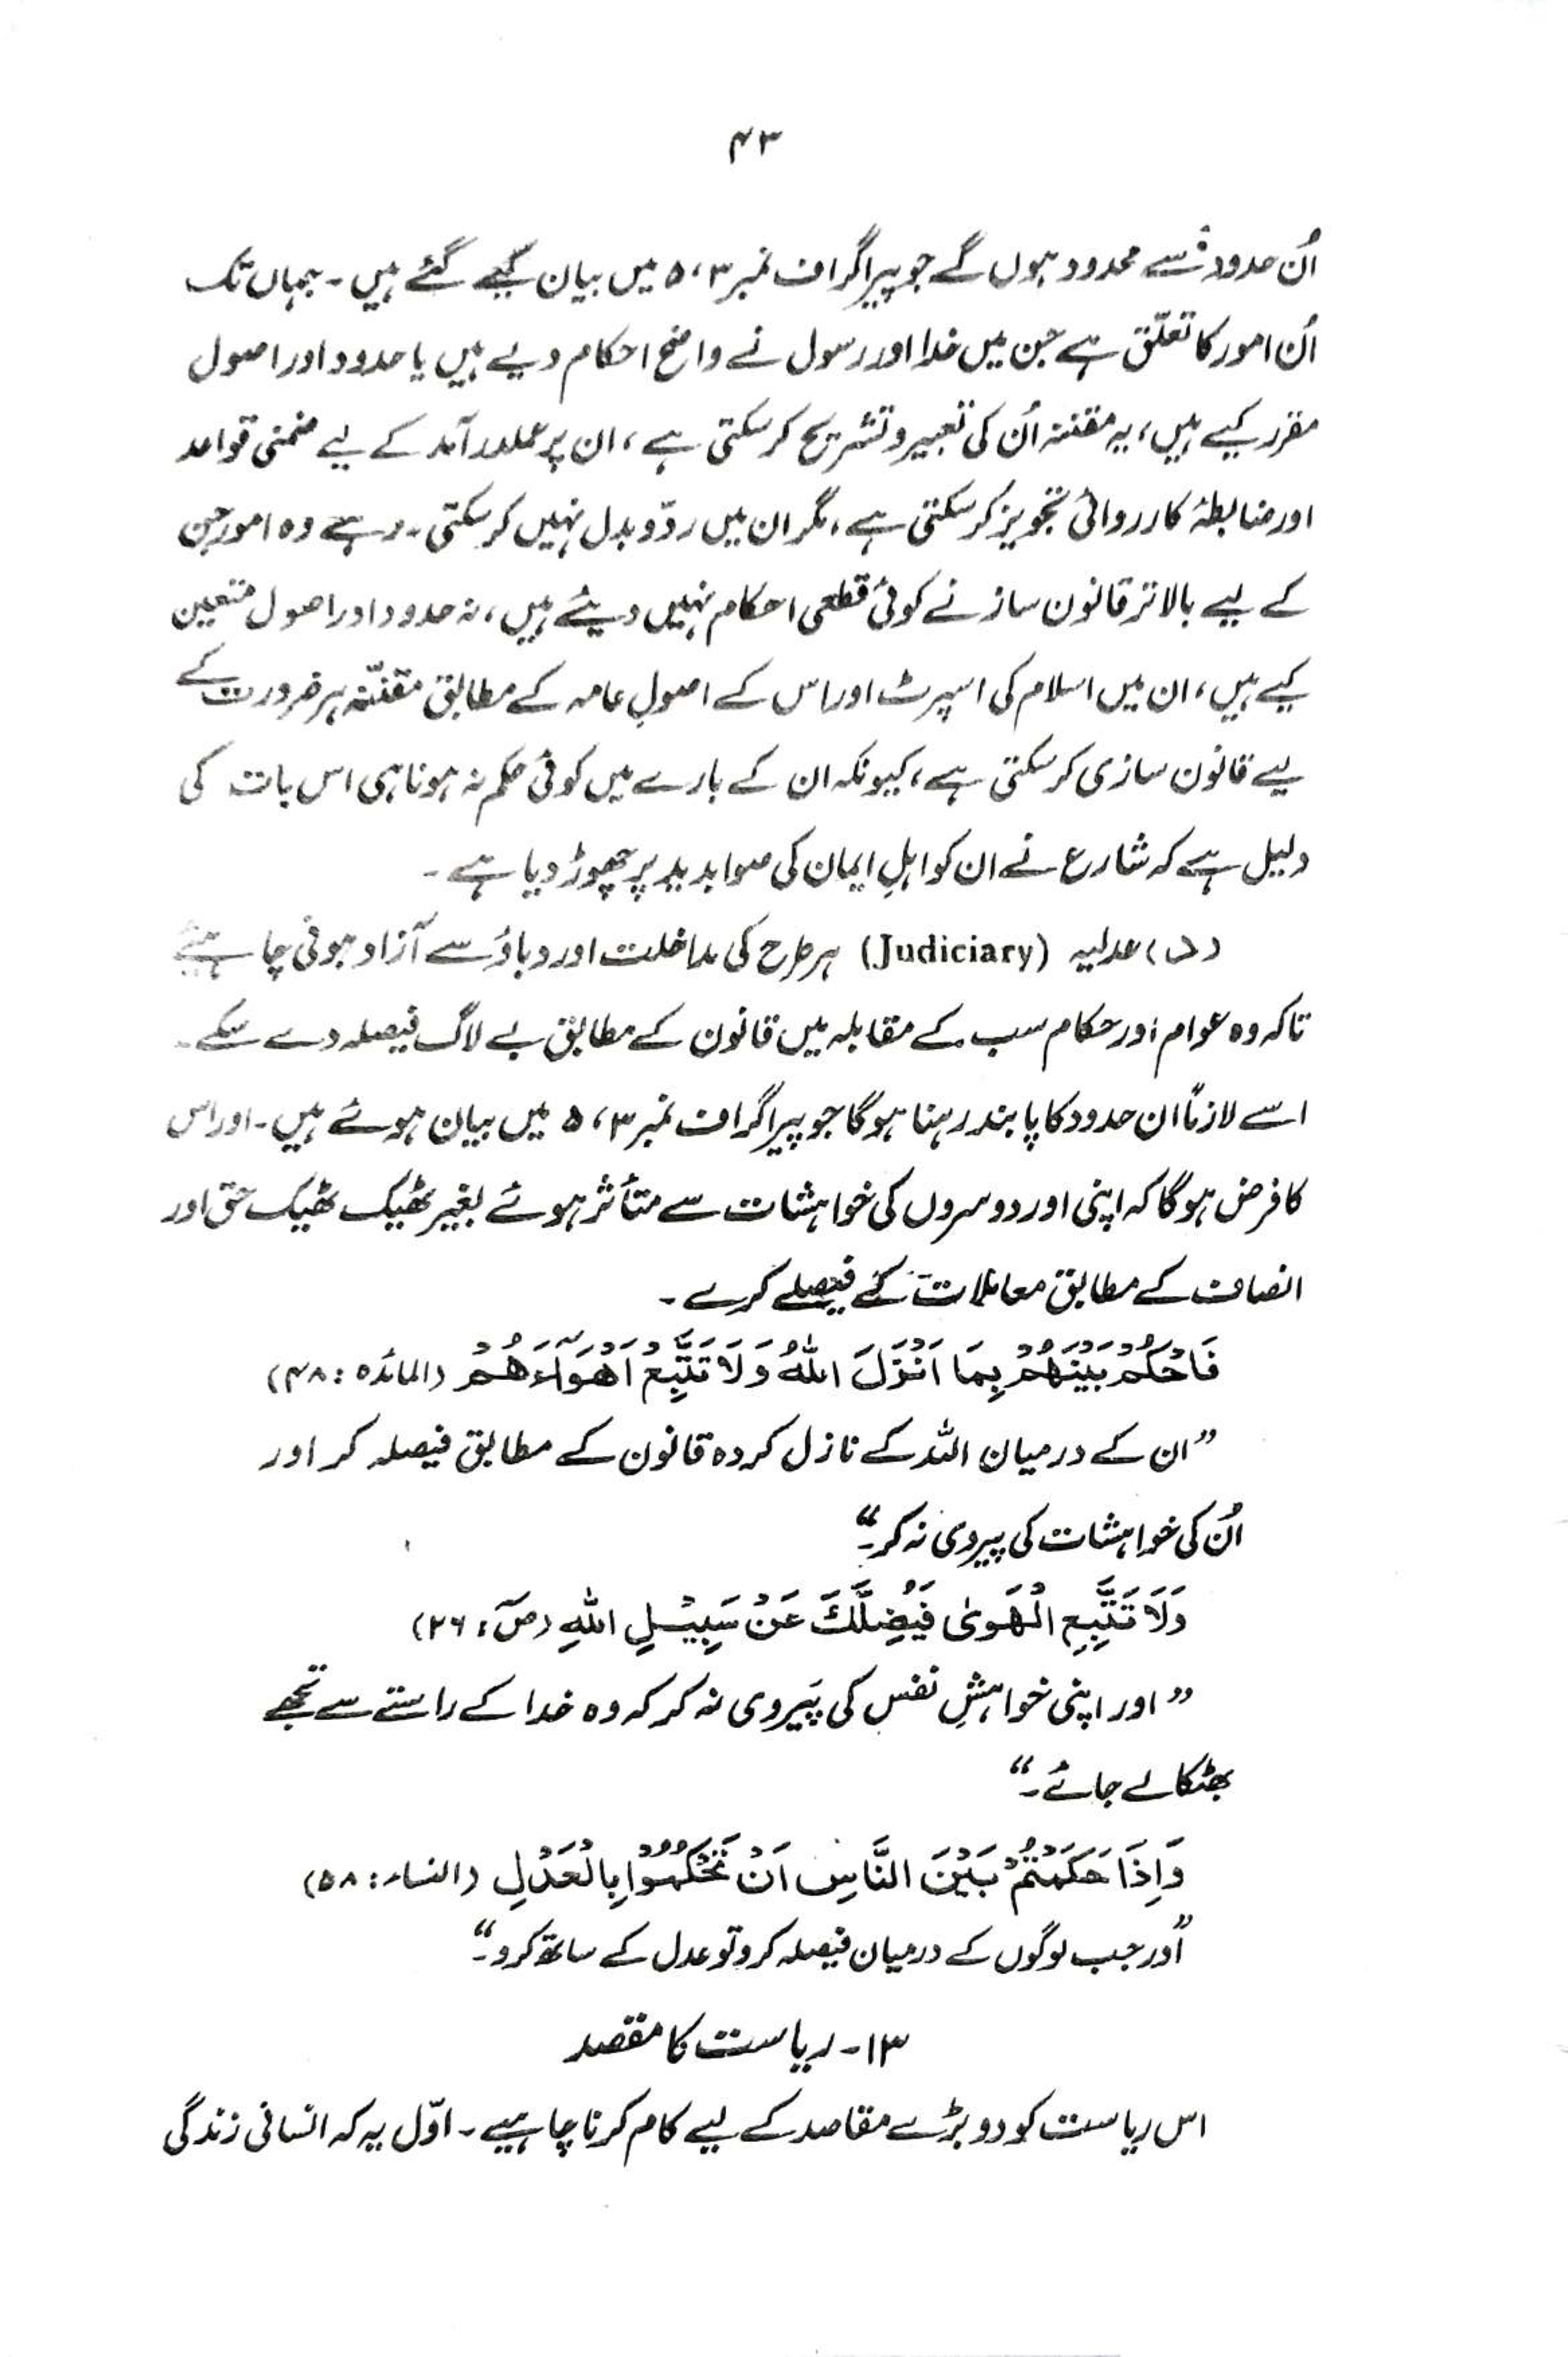 ۴۳
اُن حدود سے محدود ہوں گے جو پیراگراف نمبر ۳، ۵ میں بیان کیے گئے ہیں۔ جہاں تک
اُن امور کا تعلّق ہے جن میں خدا اور رسول نے واضح احکام دیے ہیں یا حدود اور اصول
مقرر کیے ہیں، یہ مقننہ اُن کی تعبیر و تشریح کر سکتی ہے، ان پر عملدرآمد کے لیے ضمنی قواعد
اور ضابطۂ کارروائی تجویز کر سکتی ہے، مگر ان میں ردّ و بدل نہیں کر سکتی۔ رہے وہ امور جن
کے لیے بالاتر قانون ساز نے کوئی قطعی احکام نہیں دیئے ہیں، نہ حدود اور اصول متعین
کیے ہیں، ان میں اسلام کی اسپرٹ اور اس کے اصولِ عامہ کے مطابق مقنّنہ ہر ضرورت کے
لیے قانون سازی کر سکتی ہے، کیونکہ ان کے بارے میں کوئی حکم نہ ہونا ہی اس بات کی
دلیل ہے کہ شارع نے ان کو اہلِ ایمان کی صوابدید پر چھوڑ دیا ہے۔
(د) عدلیہ (Judiciary) ہر طرح کی مداخلت اور دباؤ سے آزاد ہونی چاہیئے
تاکہ وہ عوام اور حکام سب کے مقابلہ میں قانون کے مطابق بے لاگ فیصلہ دے سکے۔
اسے لازماً ان حدود کا پابند رہنا ہوگا جو پیراگراف نمبر ۳، ۵ میں بیان ہوئے ہیں۔ اور اس
کا فرض ہوگا کہ اپنی اور دوسروں کی خواہشات سے متأثر ہوئے بغیر ٹھیک ٹھیک حق اور
انصاف کے مطابق معاملات کے فیصلے کرے۔
فَاحْكُمْ بَيْنَهُمْ بِمَا اَنْزَلَ اللهُ وَلَا تَتَّبِعْ اَهْوَآءَهُمْ (المائدہ: ۴۸)
”ان کے درمیان اللہ کے نازل کردہ قانون کے مطابق فیصلہ کر اور
اُن کی خواہشات کی پیروی نہ کر۔“
وَلَا تَتَّبِعِ الْهَوٰى فَيُضِلَّكَ عَنْ سَبِيْلِ اللهِ (صٓ: ۲۶)
”اور اپنی خواہشِ نفس کی پَیروی نہ کر کہ وہ خدا کے راستے سے تجھے
بھٹکا لے جائے۔“
وَاِذَا حَكَمْتُمْ بَيْنَ النَّاسِ اَنْ تَحْكُمُوْا بِالْعَدْلِ (النساء: ۵۸)
”اور جب لوگوں کے درمیان فیصلہ کرو تو عدل کے ساتھ کرو۔“
۱۳۔ ریاست کا مقصد
اس ریاست کو دو بڑے مقاصد کے لیے کام کرنا چاہیے۔ اوّل یہ کہ انسانی زندگی